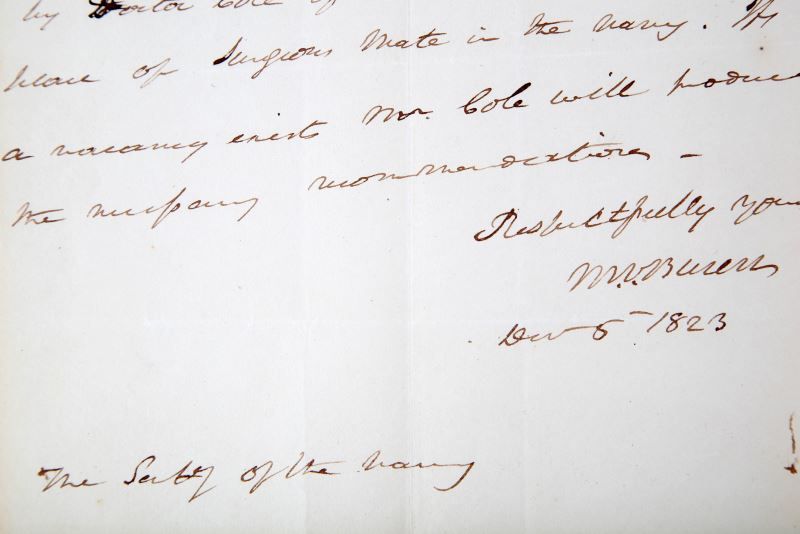 by Doctor Cole of
place of Surgeons Mate in the navy. If
a vacancy exists Mr. Cole will produce
the necessary recommendations -
Respectfully your
M.V.Buren
Dec 5 1823
The Secty of the navy